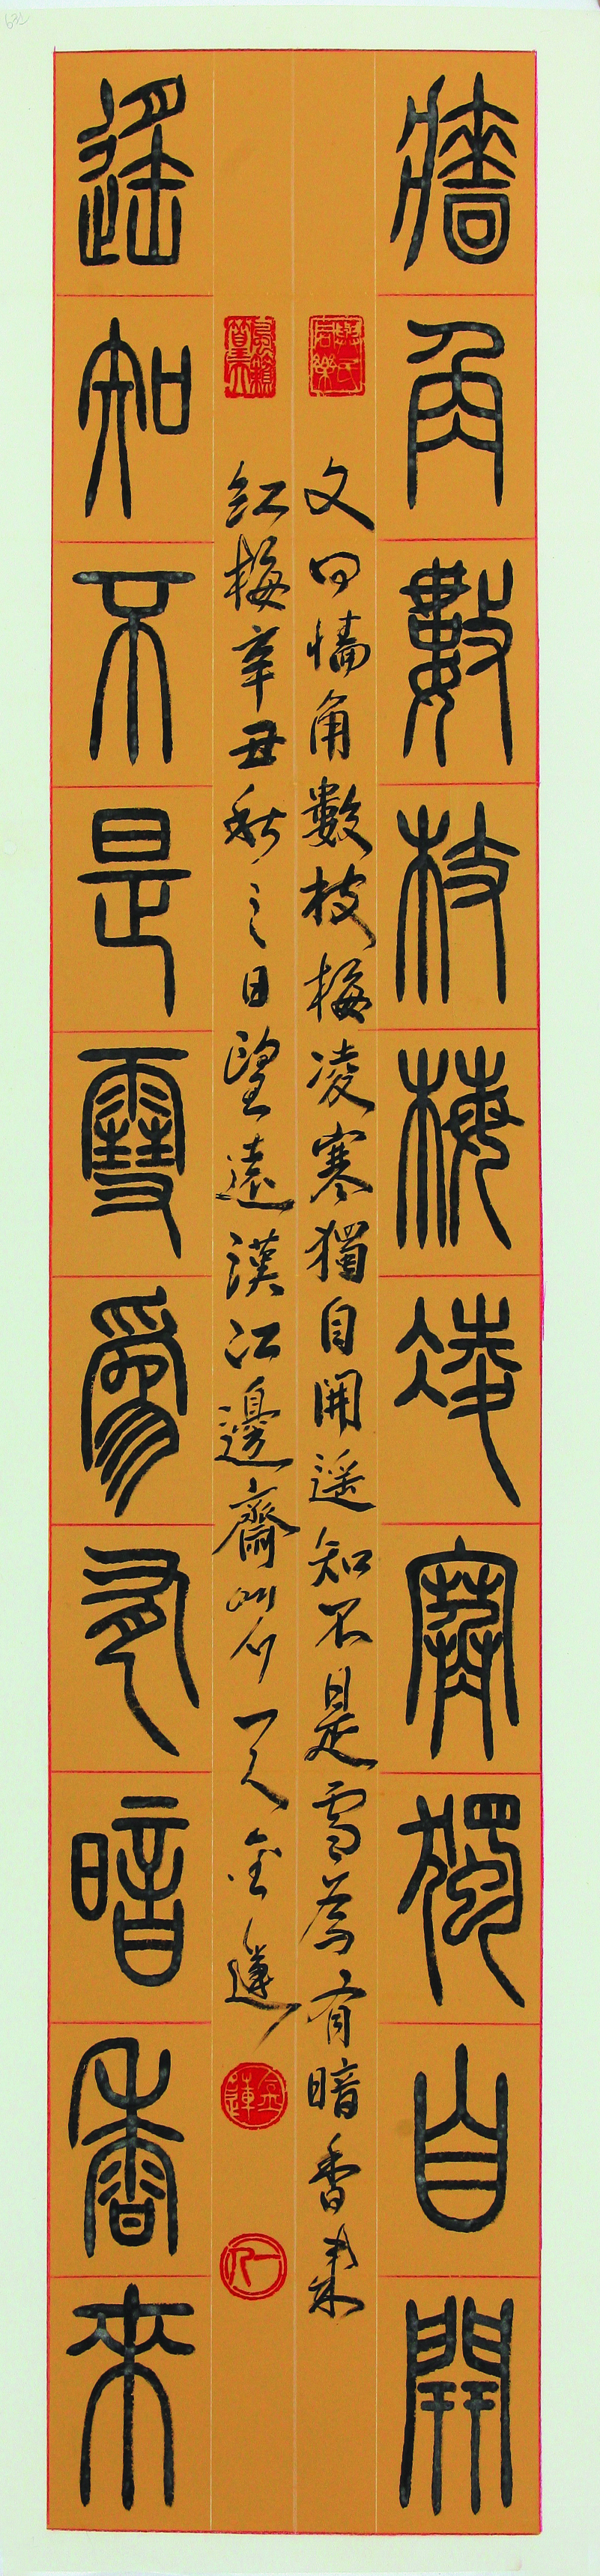 牆角數枝梅凌寒獨自開
文曰墻角數枝梅凌寒獨自開遥知不是雪為有暗香來
紅梅辛丑秋之日望遠漢江邊齋
金蓮
遙知不是雪爲有暗香來
金蓮